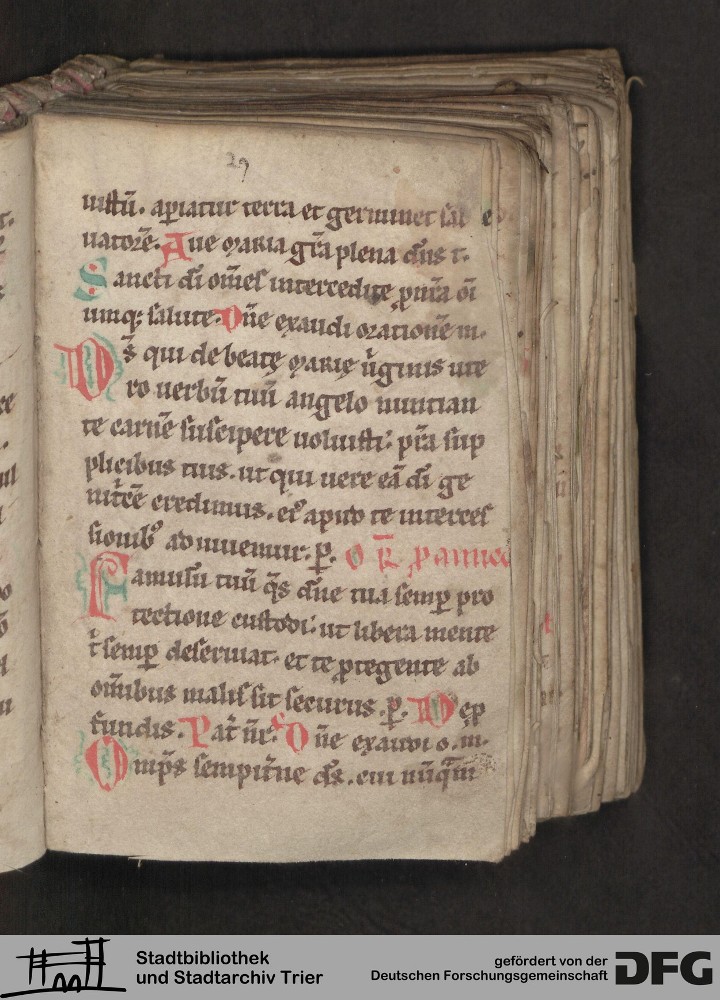 29
iustū. aperiatur terra et germinet sal
uatorē. Aue maria gr̄a plena dn̄s t.
Sancti dī om̄es intercedite ꝓ nr̄a oī
umqꝫ salute. Dn̄e exaudi orationē m.
Ds̄ qui de beatę marię ūginis ute
ro uerbū tuū angelo nuntian
te carnē suscipere uoluisti: pr̄a sup
plicibus tuis. ut qui uere eā dī ge
nitⁱcē credimus. eiꝰ apud te interces
sionibꝰ adiuuemur. p̄.
Famulū tuū qs̄ dn̄e tua semꝑ pro
tectione custodi: ut libera mente
t̄ semꝑ deseruiat. et te ꝓtegente ab
om̄ibus malis sit securus. p̄. De ꝓ
fundis. Pat̄ nr̄. Dn̄e exaudi o. m.
Omps̄ sempit̄ne ds̄. cui nūquā
Stadtbibliothek
und Stadtarchiv Trier
gefördert von der
Deutschen Forschungsgemeinschaft
DFG